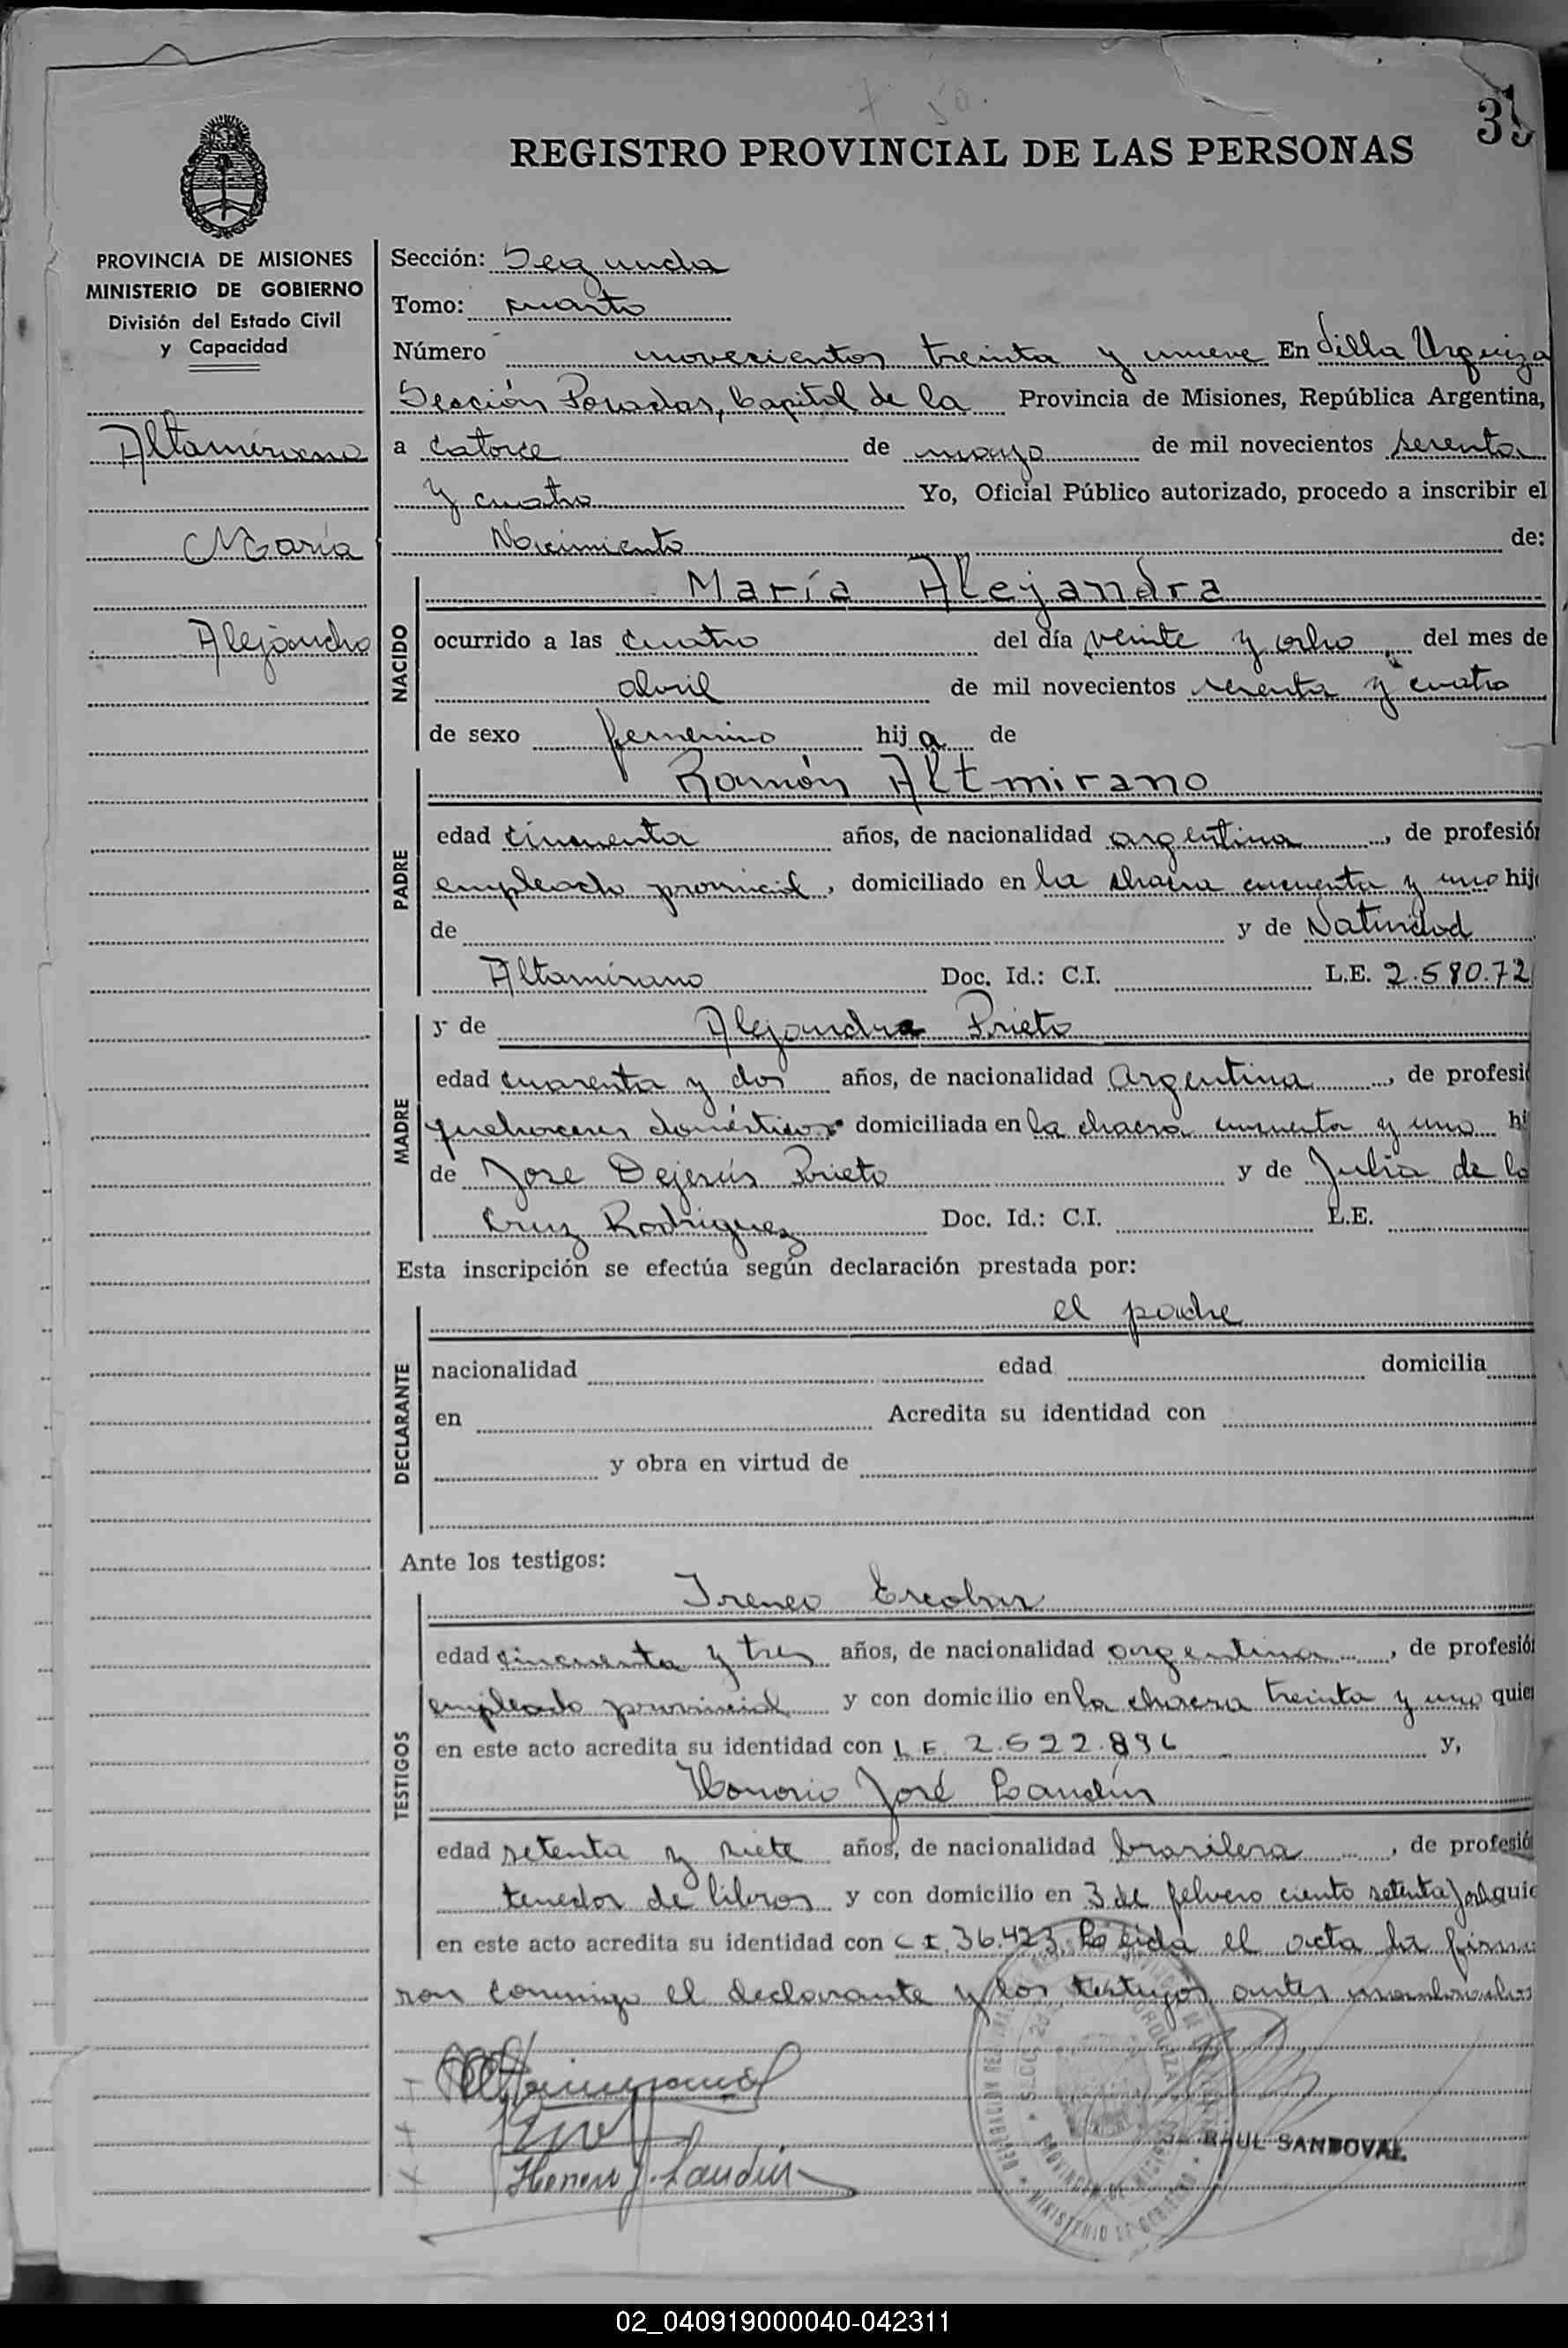 REGISTRO PROVINCIAL DE LAS PERSONAS
PROVINCIA DE MISIONES
MINISTERIO DE GOBIERNO
División del Estado Civil
y Capacidad
Altamirano
María
Alejandra
Sección: Segunda
Tomo: cuarto
Número novecientos treinta y nueve En Villa Urquiza
Sección Posadas, Capital de la Provincia de Misiones, República Argentina,
a catorce de mayo de mil novecientos
y cuatro Yo, Oficial Público autorizado, procedo a inscribir el
Nacimiento de:
NACIDO
María Alejandra
ocurrido a las cuatro del día veinte y ocho del mes de
abril de mil novecientos y cuatro
de sexo femenino hija de
PADRE
Ramón Altmirano
edad cincuenta años, de nacionalidad argentina, de profesión
empleado provincial, domiciliado en la chacra cincuenta y uno hijo
de y de Natividad
Altamirano Doc. Id.: C.I. L.E. 2.580.72
MADRE
y de Alejandra Prieto
edad cuarenta y dos años, de nacionalidad Argentina, de profesi
quehaceres domésticos domiciliada en la chacra cincuenta y uno hi
de Jose Dejesús Prieto y de Julia de la
Cruz Rodriguez Doc. Id.: C.I. L.E.
Esta inscripción se efectúa según declaración prestada por:
DECLARANTE
el padre
nacionalidad edad domicilia
en Acredita su identidad con
y obra en virtud de
Ante los testigos:
TESTIGOS
Ireneo Escobar
edad cincuenta y tres años, de nacionalidad argentina, de profesión
empleado provincial y con domicilio en la chacra treinta y uno quien
en este acto acredita su identidad con L.E. 2.522.896 y,
Honorio José Landín
edad setenta y siete años, de nacionalidad brasilera, de profesió
tenedor de libros y con domicilio en 3 de febrero ciento setenta quie
en este acto acredita su identidad con C I. 36.423. Leida el acta la firma
ron conmigo el declarante y los testigos antes nombrados
Altamirano
Honorio J. Landín
RAUL SANDOVAL
MINISTERIO DE GOBIERNO
02_040919000040-042311